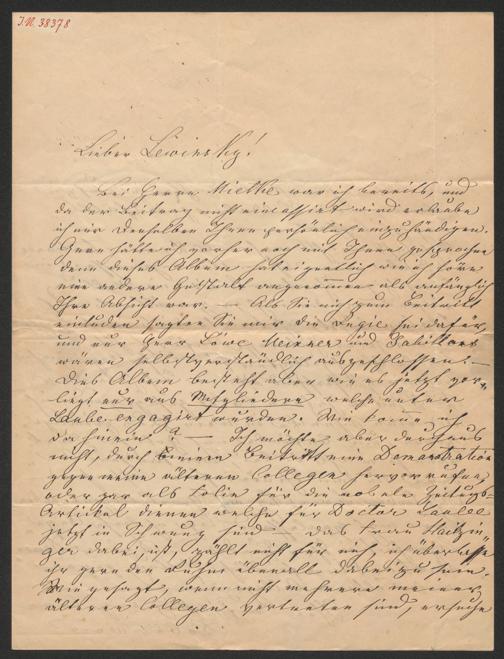 J.N. 38378
Lieber Lewinsky!
Bei Herrn Mielke war ich bereits, und
da der Beitrag nicht einkassirt wird erlaube
ich mir denselben Ihnen persönlich einzuhändigen.
Gern hätte ich vorher noch mit Ihnen gesprochen
denn dieses Album hat eigentlich wie ich höre
eine andere Gestalt angenommen als anfänglich
Ihre Absicht war. — Als Sie mich zum Beitritt
einluden sagten Sie mir die Regie sei dafür,
und nur Herr Löwe Meixner und
wären selbstverständlich ausgeschlossen. —
Dies Album besteht aber wie es jetzt vor-
liegt nur aus Mitgliedern welche unter
Laube engagirt wurden. Wie komme ich
da hinein? — Ich möchte aber durchaus
nicht, durch meinen Beitritt eine Demonstration
gegen meine älteren Collegen hervorrufen,
oder gar als Folie für die noblen Zeitungs-
Artikel dienen welche für Doctor Laube
jetzt in Schwung sind — das Frau Haitzin-
ger dabei ist, zählt nicht für mich, ich überlasse
ihr gern den Ruhm überall dabei zu sein.
Wie gesagt, wenn nicht mehrere meiner
älteren Collegen vertreten sind, ersuche